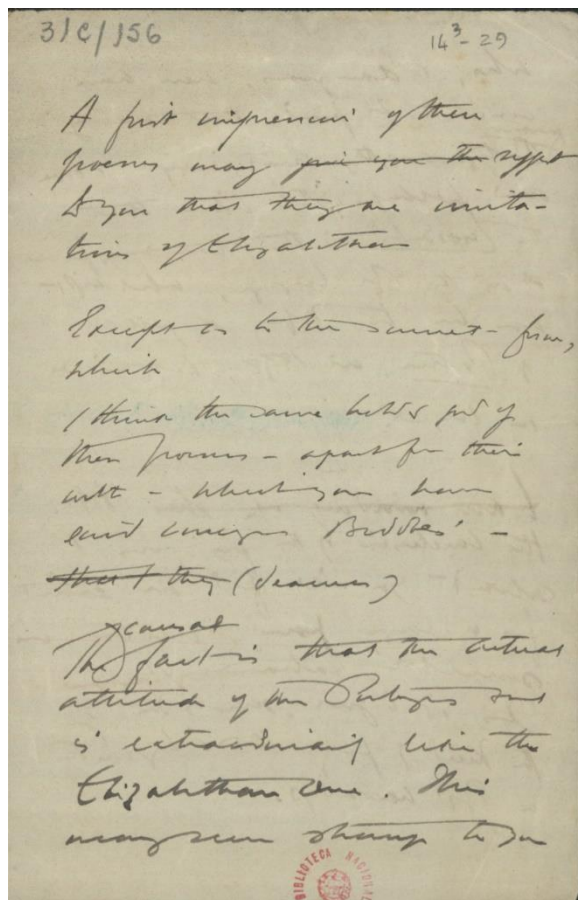 31C/156
14³-29
A first impression of these
poems may give you the suggest
to you that they are imita-
tions of Elizabethan
Except as to the sonnet-form,
which
I think the same holds good of
these poems - apart from their
- which you have
said Biddes' -
that they (dramas)
causal
The fact is that the actual
attitude of the Portuguese soul
is extraordinarily like the
Elizabethan one. This
may seem strange to you
BIBLIOTECA NACIONAL